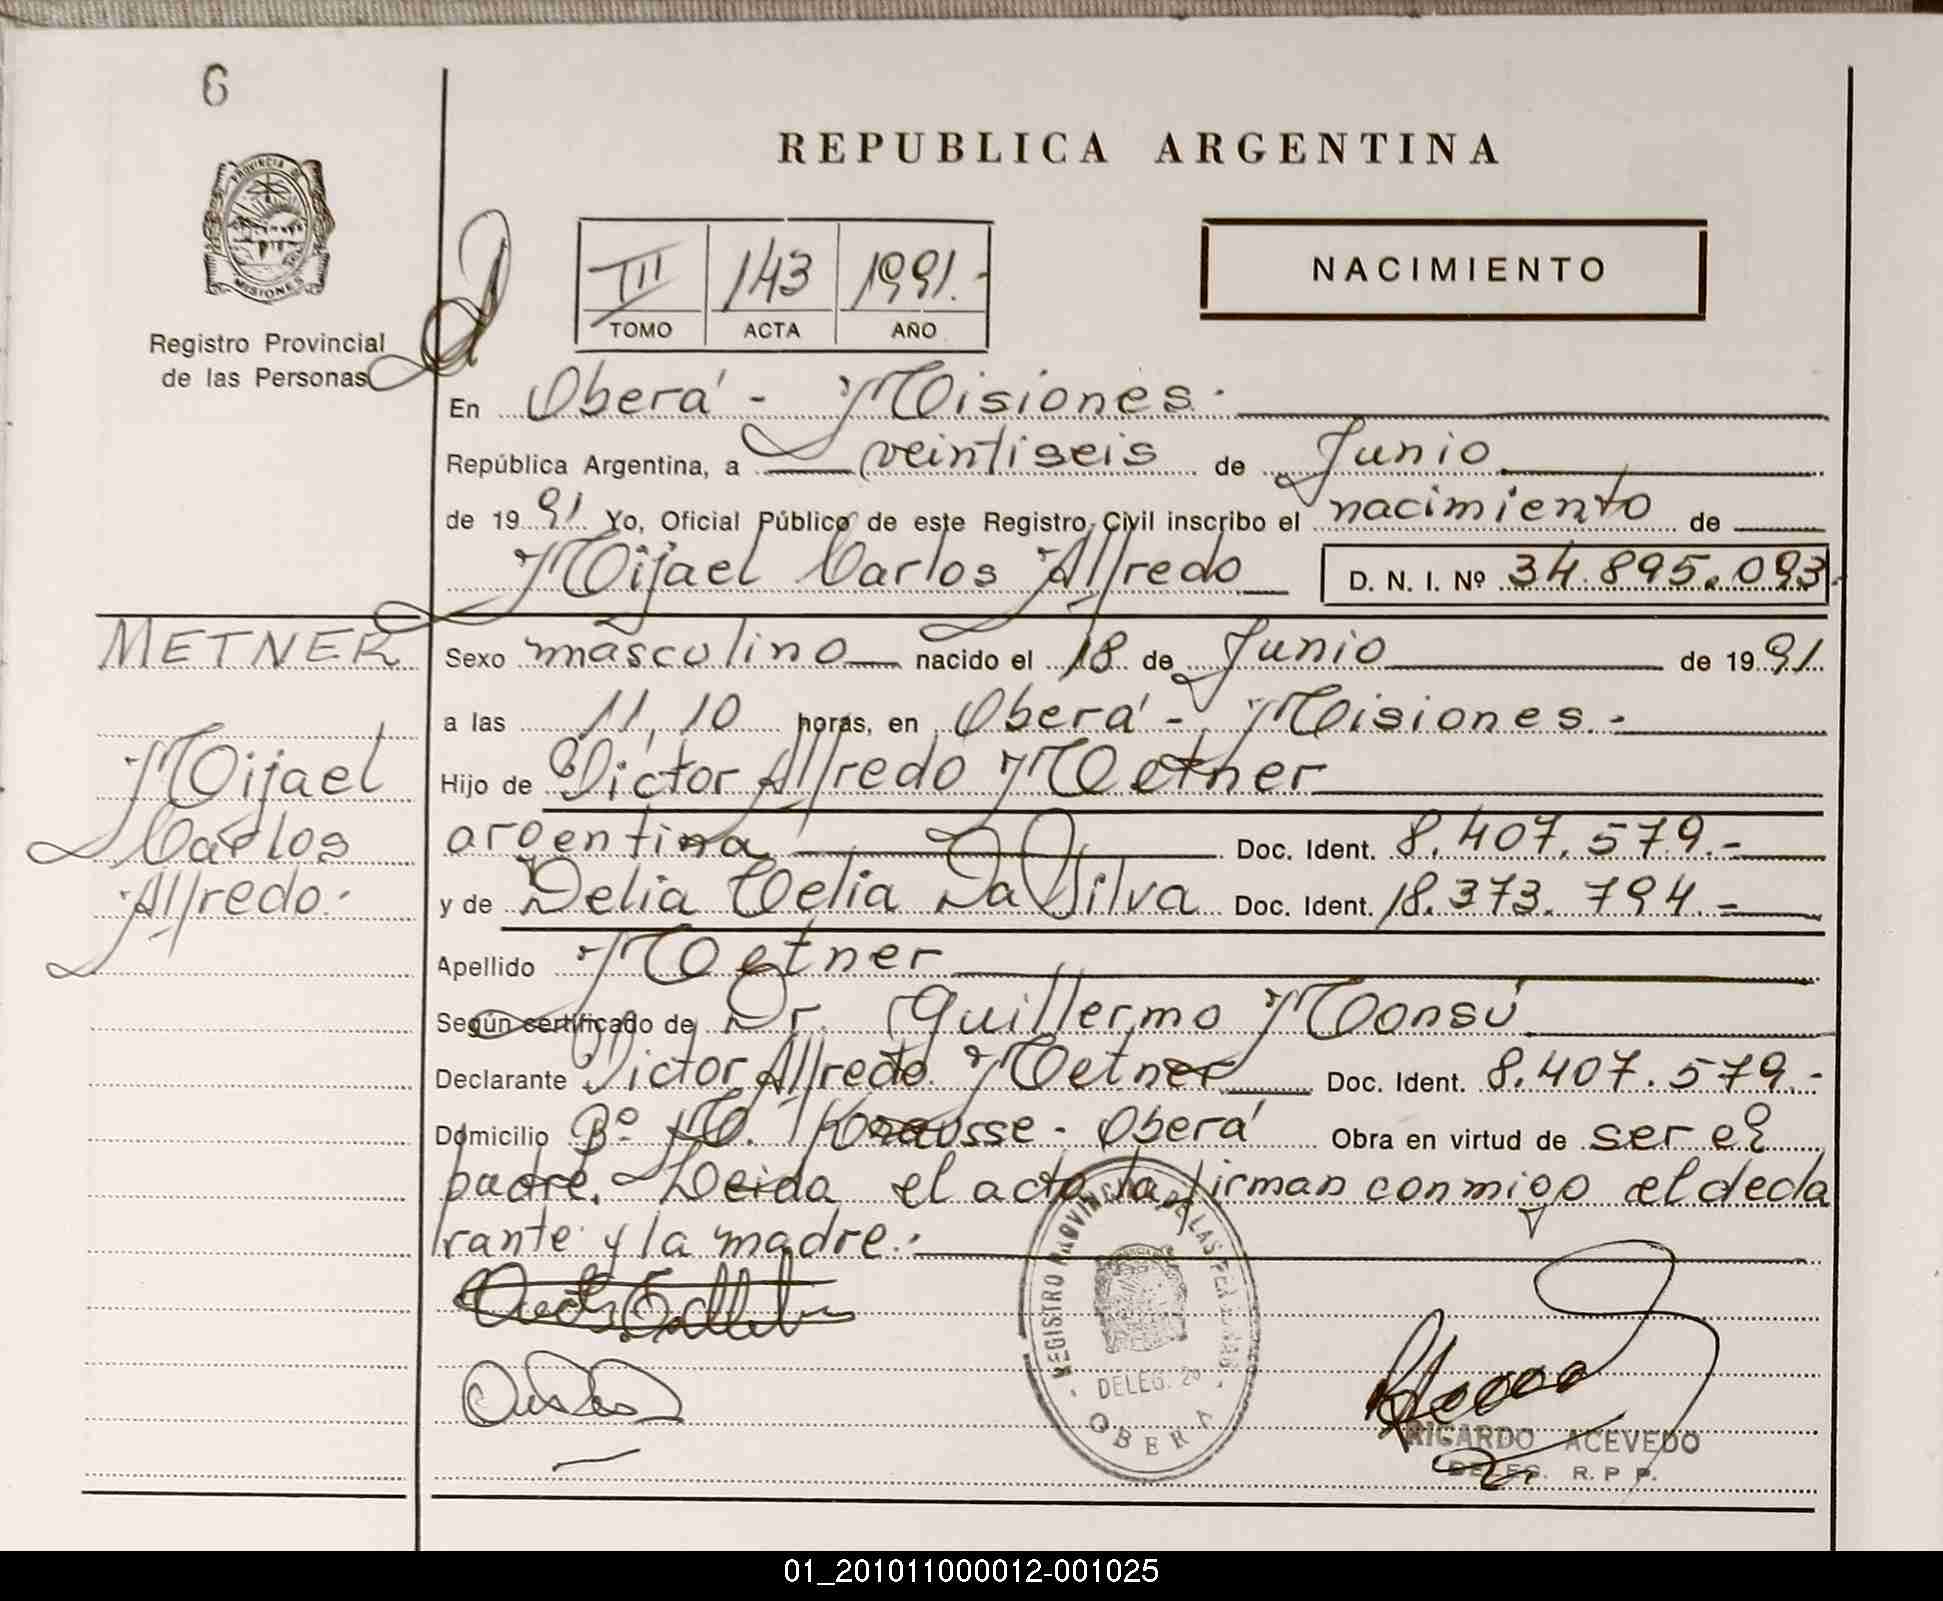 6
REPUBLICA ARGENTINA
PROVINCIA DE
MISIONES
Registro Provincial
de las Personas
III 143 1991.-
TOMO ACTA AÑO
NACIMIENTO
En Oberá - Misiones.
República Argentina, a veintiseis de Junio
de 1991 Yo, Oficial Público de este Registro Civil inscribo el nacimiento de
Mijael Carlos Alfredo D. N. I. Nº 34.895.093.-
METNER
Mijael
Carlos
Alfredo.
Sexo masculino nacido el 18 de Junio de 1991
a las 11,10 horas, en Oberá - Misiones.-
Hijo de Victor Alfredo Metner
argentina Doc. Ident. 8.407.579.-
y de Delia Celia Da Silva Doc. Ident. 18.373.794.-
Apellido Metner
Según certificado de Dr. Guillermo Monsú
Declarante Victor Alfredo Metner Doc. Ident. 8.407.579.-
Domicilio Bº Krausse - Oberá Obra en virtud de ser el
padre. Leida el acta la firman conmigo el decla
rante y la madre.-
REGISTRO PROVINCIAL DE LAS PERSONAS
DELEG. 2º
OBERA
RICARDO ACEVEDO
DELEG. R. P. P.
01_201011000012-001025